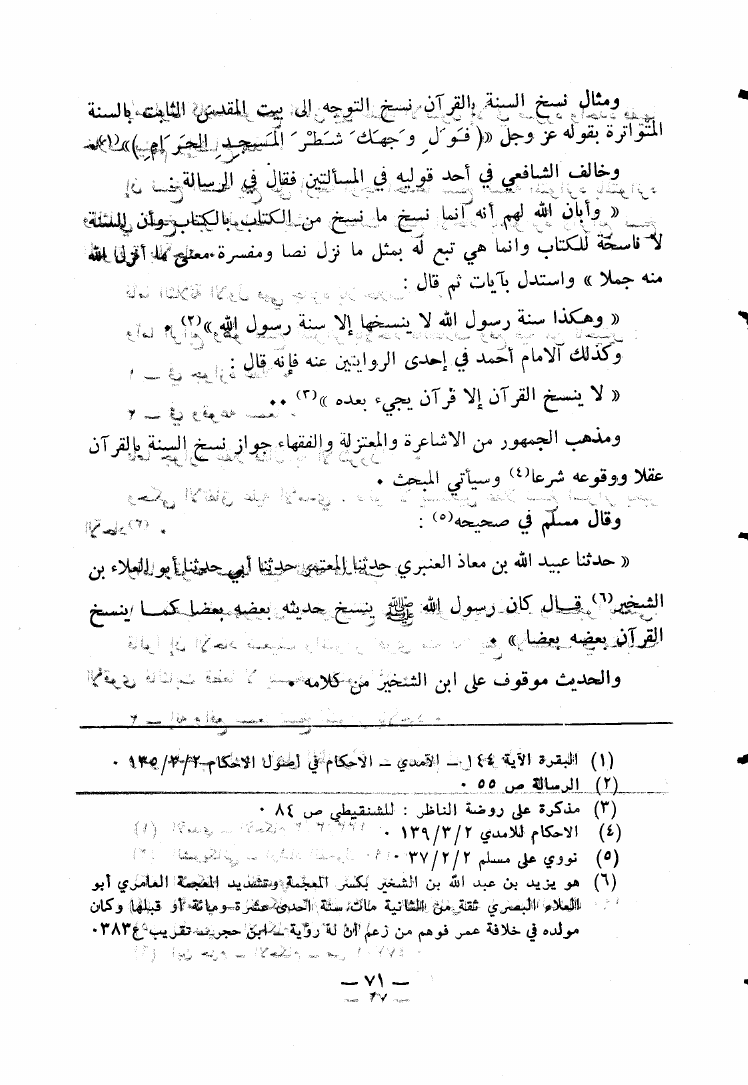 ومثال نسخ السنة بالقرآن نسخ التوجه الى بيت المقدس الثابت بالسنة
المتواترة بقوله عز وجل «(فَوَلِّ وَجهَكَ شَطْرَ المَسجِدِ الحَرَامِ)»(١)
وخالف الشافعي في أحد قوليه في المسألتين فقال في الرسالة :
« وأبان الله لهم أنه انما نسخ ما نسخ من الكتاب بالكتاب وأن السنة
لا ناسخة للكتاب وانما هي تبع له بمثل ما نزل نصا ومفسرة معنى ما أنزل الله
منه جملا » واستدل بآيات ثم قال :
« وهكذا سنة رسول الله لا ينسخها إلا سنة رسول الله »(٢) ٠
وكذلك الامام أحمد في إحدى الروايتين عنه فإنه قال :
« لا ينسخ القرآن إلا قرآن يجيء بعده »(٣) ٠٠
ومذهب الجمهور من الاشاعرة والمعتزلة والفقهاء جواز نسخ السنة بالقرآن
عقلا ووقوعه شرعا(٤) وسيأتي المبحث ٠
وقال مسلم في صحيحه(٥) :
« حدثنا عبيد الله بن معاذ العنبري حدثنا المعتمر حدثنا أبي حدثنا أبو العلاء بن
الشخير(٦) قال كان رسول الله ﷺ ينسخ حديثه بعضه بعضا كما ينسخ
القرآن بعضه بعضا » ٠
والحديث موقوف على ابن الشخير من كلامه ٠
(١) البقرة الآية ١٤٤ – الآمدي – الاحكام في أصول الاحكام ١٣٥/٣/٢ ٠
(٢) الرسالة ص ٥٥ ٠
(٣) مذكرة على روضة الناظر : للشنقيطي ص ٨٤ ٠
(٤) الاحكام للامدي ١٣٩/٣/٢ ٠
(٥) نووي على مسلم ٣٧/٢/٢ ٠
(٦) هو يزيد بن عبد الله بن الشخير بكسر المعجمة وتشديد المعجمة العامري أبو
العلاء البصري ثقة من الثانية مات سنة احدى عشرة ومائة أو قبلها وكان
مولده في خلافة عمر فوهم من زعم أن له رؤية – ابن حجر – تقريب ٣٨٣٠
– ٧١ –